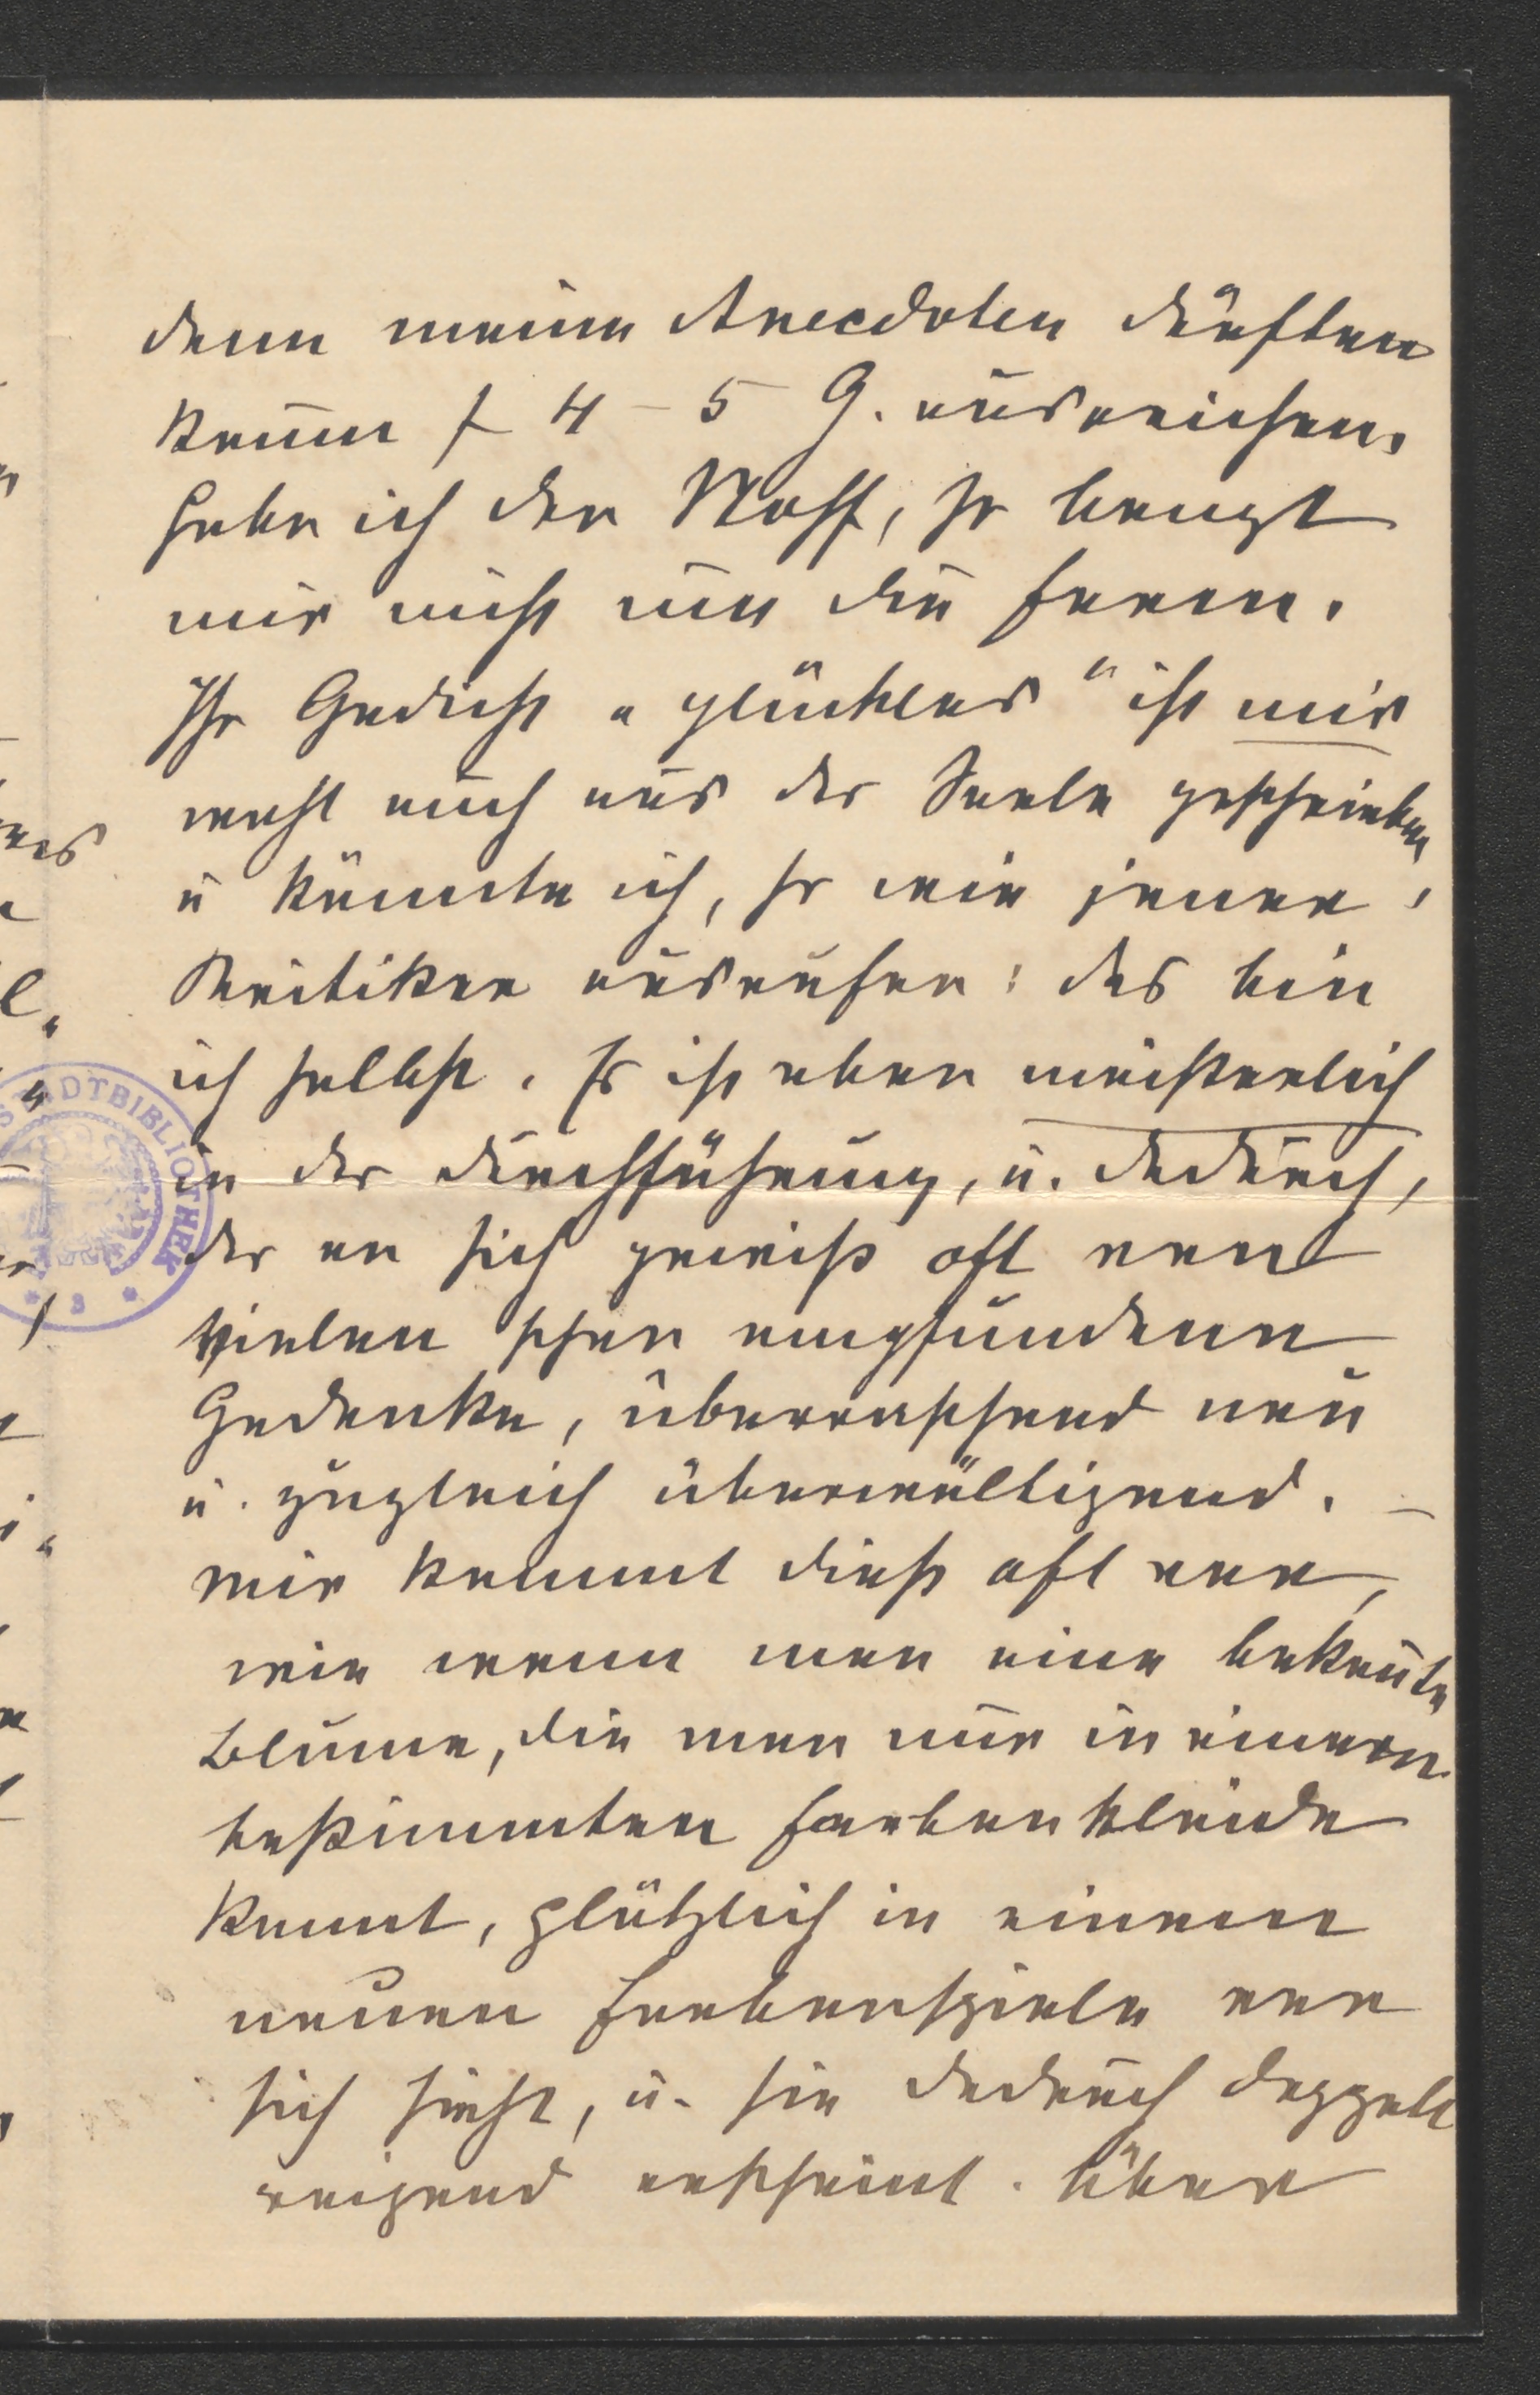 denn meine Anecdoten dürften
kaum f 4 – 5 G. ausreichen.
Habe ich den Stoff, so bangt
mir nicht um die Form.
Ihr Gedicht „glücklos“ ist mir
wohl auch aus der Seele geschrieben
u könnte ich, so wie jener,
Kritiker ausrufen: das bin
ich selbst. Es ist aber meisterlich
in der Durchführung, u. dadurch,
der an sich gewiß oft von
Vielen schon empfundene
Gedanke, überraschend neu
u. zugleich überwältigend. –
Mir kommt dieß oft vor,
wie wenn man eine bekannte
Blume, die man nur in einem
bestimmten Farbenkleide
kennt, plötzlich in einem
neuen Farbenspiele vor
sich sieht, u. sie dadurch doppelt
reizend erscheint. Über
STADTBIBLIOTHEK
* 3 *